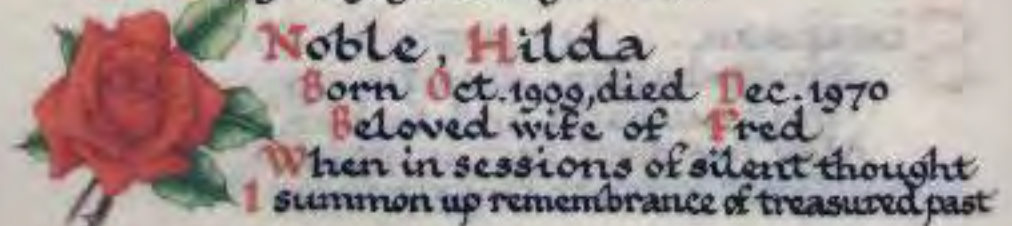 Noble, Hilda
Born Oct.1909, died Dec.1970
Beloved wife of Fred
When in sessions of silent thought
I summon up remembrance of treasured past